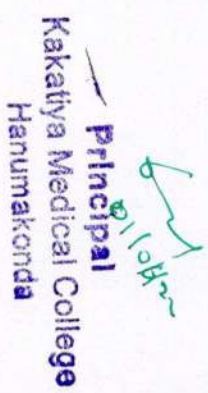 Principal
Kakatiya Medical College
Hanumakonda